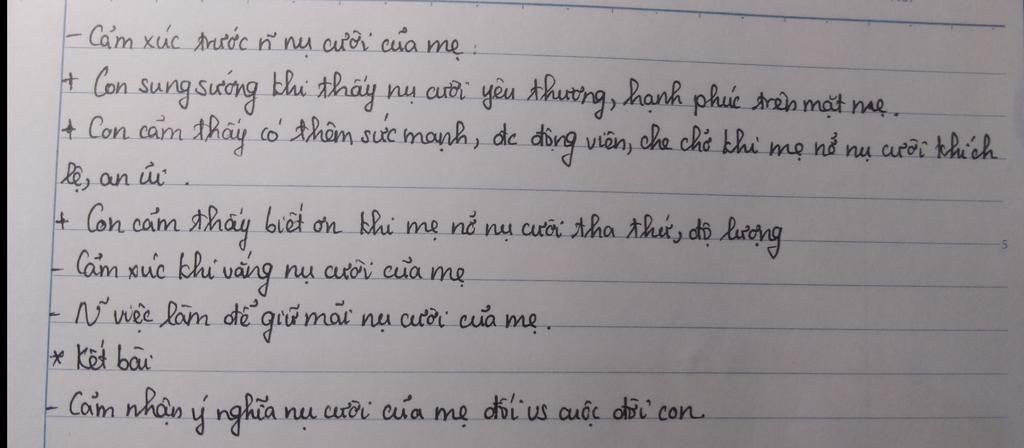 - Cảm xúc trước n~ nụ cười của mẹ:
+ Con sung sướng khi thấy nụ cười yêu thương, hạnh phúc trên mặt mẹ.
+ Con cảm thấy có thêm sức mạnh, đc động viên, che chở khi mẹ nở nụ cười khích
lệ, an ủi.
+ Con cảm thấy biết ơn khi mẹ nở nụ cười tha thứ, độ lượng
- Cảm xúc khi vắng nụ cười của mẹ
- N~ việc làm để giữ mãi nụ cười của mẹ.
* Kết bài
- Cảm nhận ý nghĩa nụ cười của mẹ đối vs cuộc đời con.
5